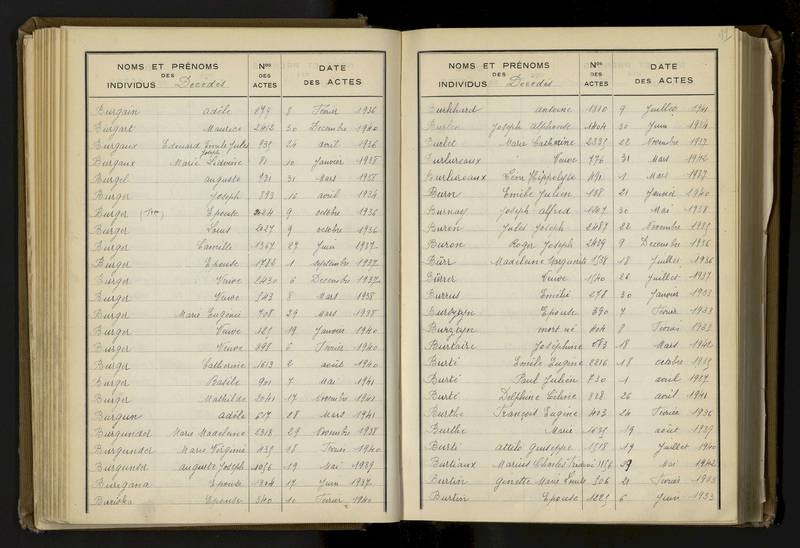 NOMS ET PRÉNOMS DES INDIVIDUS Décédés Nos DES ACTES DATE DES ACTES
Burgain Adèle 279 8 Février 1936
Burgart Maurice 2412 30 Decembre 1940
Burgaux Edouard Emile Jules Joseph 935 24 avril 1926
Burgaux Marie 81 10 Janvier 1938
Burgel auguste 931 31 Mars 1938
Burger Joseph 893 16 avril 1934
Burger Epouse 9 octobre 1936
Burger Louis 2027 9 octobre 1936
Burger Camille 1367 27 Juin 1937
Burger Epouse 1 septembre 1937
Burger Veuve 2430 6 Decembre 1937
Burger Veuve 543 8 Mars 1938
Burger Marie Eugenie 708 29 Mars 1938
Burger Veuve 19 Janvier 1940
Burger Veuve 6 Février 1940
Burger Catherine 1613 2 août 1940
Burger Basile 901 7 Mai 1941
Burger Mathilde 2041 17 Novembre 1941
Burgun adèle 617 28 Mars 1941
Burgunder Marie Madeleine 2313 29 Novembre 1938
Burgunder Marie Virginie 18 Février 1940
Burgunder auguste Joseph 1056 19 Mai 1939
Burigana Epouse 1304 17 Juin 1937
Epouse 340 10 Février 1940
NOMS ET PRÉNOMS DES INDIVIDUS Décédés Nos DES ACTES DATE DES ACTES
Burkhard antoine 9 Juillet 1941
Joseph Alphonse 1404 30 Juin 1934
Burlet Marie Catherine 2335 22 Novembre 1937
Burlureaux Veuve 776 31 Mars 1942
Burlureaux Léon Hippolyte 491 1 Mars 1937
Burn Emile Julien 108 21 Janvier 1940
Burnay Joseph alfred 30 Mai 1938
Buren Jules Joseph 2487 22 Novembre 1935
Buron Roger Joseph 2459 9 Decembre 1936
Bürr Madeleine Marguerite 1518 18 Juillet 1936
Bürrer Veuve 1540 26 Juillet 1937
Burrus Emilie 278 30 Janvier 1933
Epouse 390 7 Février 1933
mort né 404 8 Février 1933
Burtaire Joséphine 683 18 Mars 1942
Burté Emile Eugène 2216 18 octobre 1935
Burté Paul Julien 730 1 avril 1937
Burté Delphine Céline 808 26 avril 1941
Burthe François Eugène 403 24 Février 1936
Burthe Marie 1635 19 août 1939
Burti Attilo Guiseppe 1518 19 Juillet 1940
Burtiaux Marius Charles 1156 19 Mai 1942
Burtin Ginette Marie Emilie 306 21 Février 1938
Burtin Epouse 1225 6 Juin 1933